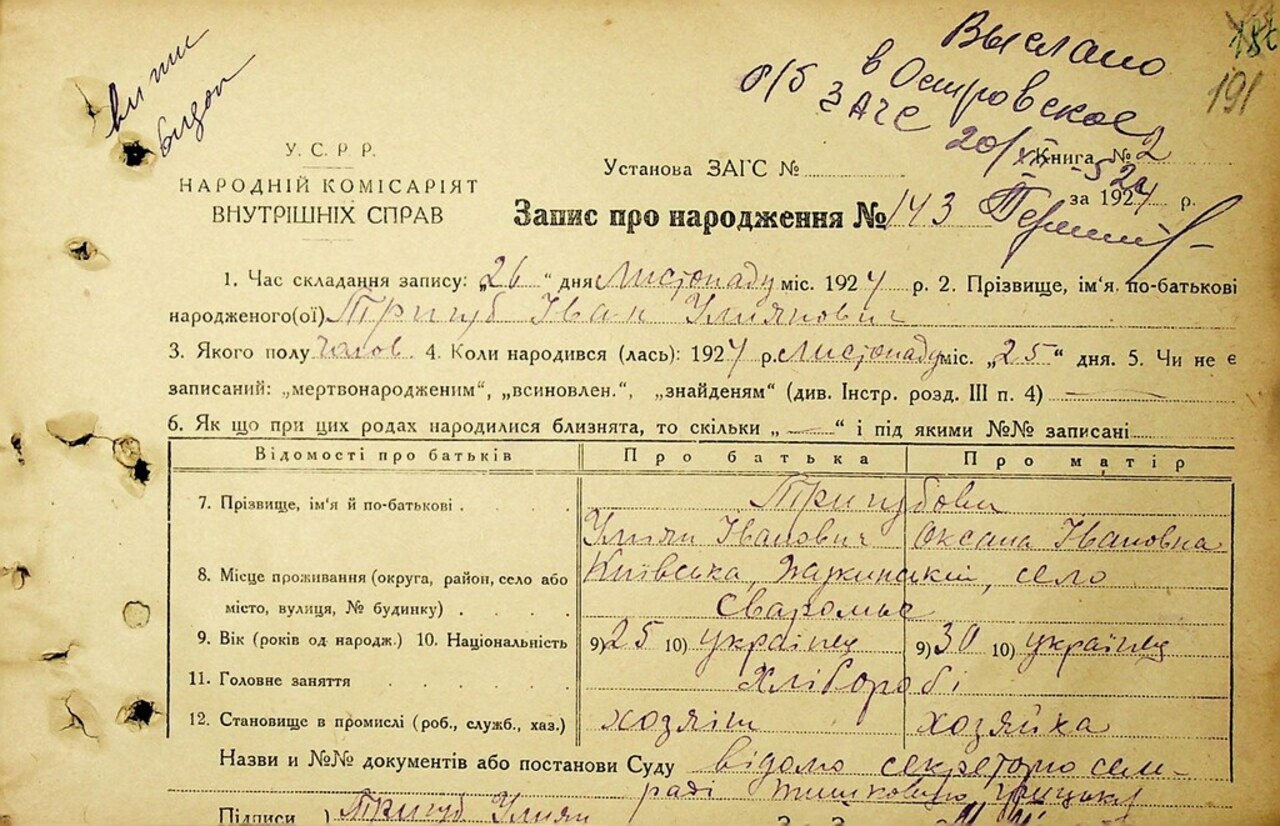 Выслано
в Островское
о/б ЗАГС
20/XII-52
191
У. С. Р. Р.
НАРОДНІЙ КОМІСАРІЯТ
ВНУТРІШНІХ СПРАВ
Установа ЗАГС №
Книга № 2
за 1924 р.
Запис про народження № 143
1. Час складання запису: „26“ дня Листопаду міс. 1924 р. 2. Прізвище, ім'я, по-батькові
народженого(ої) Тригуб Іван Улиянович
3. Якого полу чолов. 4. Коли народився (лась): 1924 р. Листопаду міс. „25“ дня. 5. Чи не є
записаний: „мертвонародженим“, „всиновлен.“, „знайденям“ (див. Інстр. розд. III п. 4) —
6. Як що при цих родах народилися близнята, то скільки „—“ і під якими №№ записані
Відомості про батьків Про батька Про матір
7. Прізвище, ім'я й по-батькові Тригубови
Улиян Іванович Оксана Івановна
8. Місце проживання (округа, район, село або Київська, село
місто, вулиця, № будинку) Сваромье
9. Вік (років од народж.) 10. Національність 9) 25 10) українец 9) 30 10) українец
11. Головне заняття Хлібороби
12. Становище в промислі (роб., служб., хаз.) хозяін хозяйка
Назви и №№ документів або постанови Суду відомо секретарю сем-
раді
Підписи Тригуб Улиян